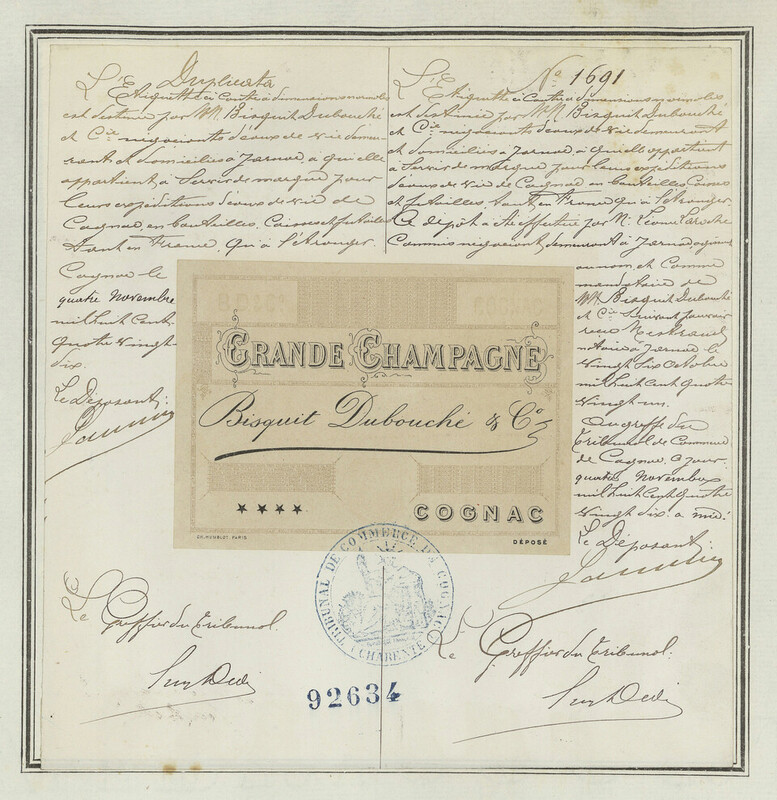 Duplicata
L'Etiquette ci contre à dimensions normales
est destinée par MM. Bisquit Dubouché
et Cie négociants d'eaux de vie demeu-
rant et domiciliés à Jarnac, à qui elle
appartient, à servir de marque pour
leurs expéditions d'eaux de vie de
Cognac, en bouteilles, Caisses et futailles
tant en France, qu'à l'étranger.
Cognac le
quatre Novembre
mil huit cent
quatre vingt
dix.
Le Déposant:
No 1691
L'Etiquette ci contre à dimensions normales
est destinée par MM. Bisquit Dubouché
et Cie négociants d'eaux de vie demeurant
et domiciliés à Jarnac à qui elle appartient
à servir de marque pour leurs expéditions
d'eaux de vie de Cognac, en bouteilles Caisses
et futailles, tant en France qu'à l'étranger.
Ce dépôt a été effectué par M. Léonce Laroche
Commis négociant, demeurant à Jarnac, agissant
au nom, et comme
mandataire de
MM. Bisquit Dubouché
et Cie suivant pouvoir
reçu
notaire à Jarnac le
vingt six octobre
mil huit cent quatre
vingt un.
Au greffe du
tribunal de Commerce
de Cognac, ce jour
quatre Novembre
mil huit cent quatre
vingt dix à midi
Le Déposant:
GRANDE CHAMPAGNE
Bisquit Dubouché & Co
★★★★
COGNAC
DÉPOSÉ
TRIBUNAL DE COMMERCE DE COGNAC
(CHARENTE)
Le Greffier du tribunal.
Le Greffier du tribunal:
92634